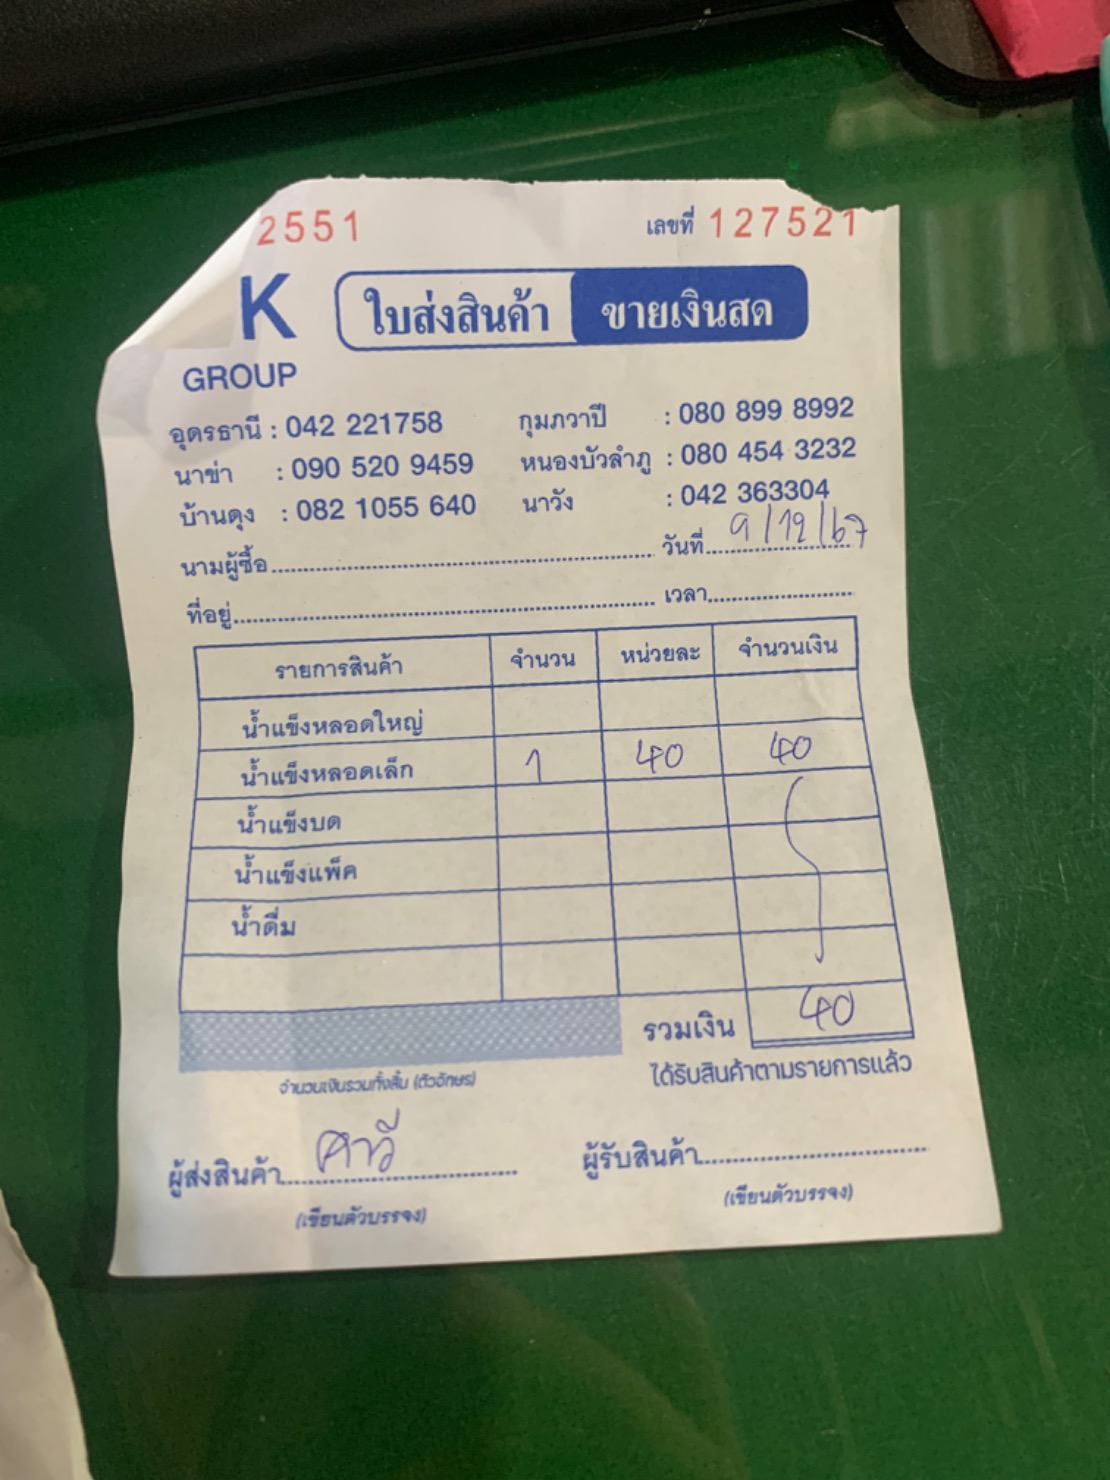 2551 เลขที่ 127521
K ใบส่งสินค้า ขายเงินสด
GROUP
อุดรธานี : 042 221758 กุมภวาปี : 080 899 8992
นาข่า : 090 520 9459 หนองบัวลำภู : 080 454 3232
บ้านดุง : 082 1055 640 นาวัง : 042 363304
นามผู้ซื้อ วันที่ 9/12/67
ที่อยู่ เวลา
รายการสินค้า จำนวน หน่วยละ จำนวนเงิน
น้ำแข็งหลอดใหญ่
น้ำแข็งหลอดเล็ก 1 40 40
น้ำแข็งบด
น้ำแข็งแพ็ค
น้ำดื่ม
รวมเงิน 40
จำนวนเงินรวมทั้งสิ้น (ตัวอักษร) ได้รับสินค้าตามรายการแล้ว
ผู้ส่งสินค้า ผู้รับสินค้า
(เขียนตัวบรรจง) (เขียนตัวบรรจง)